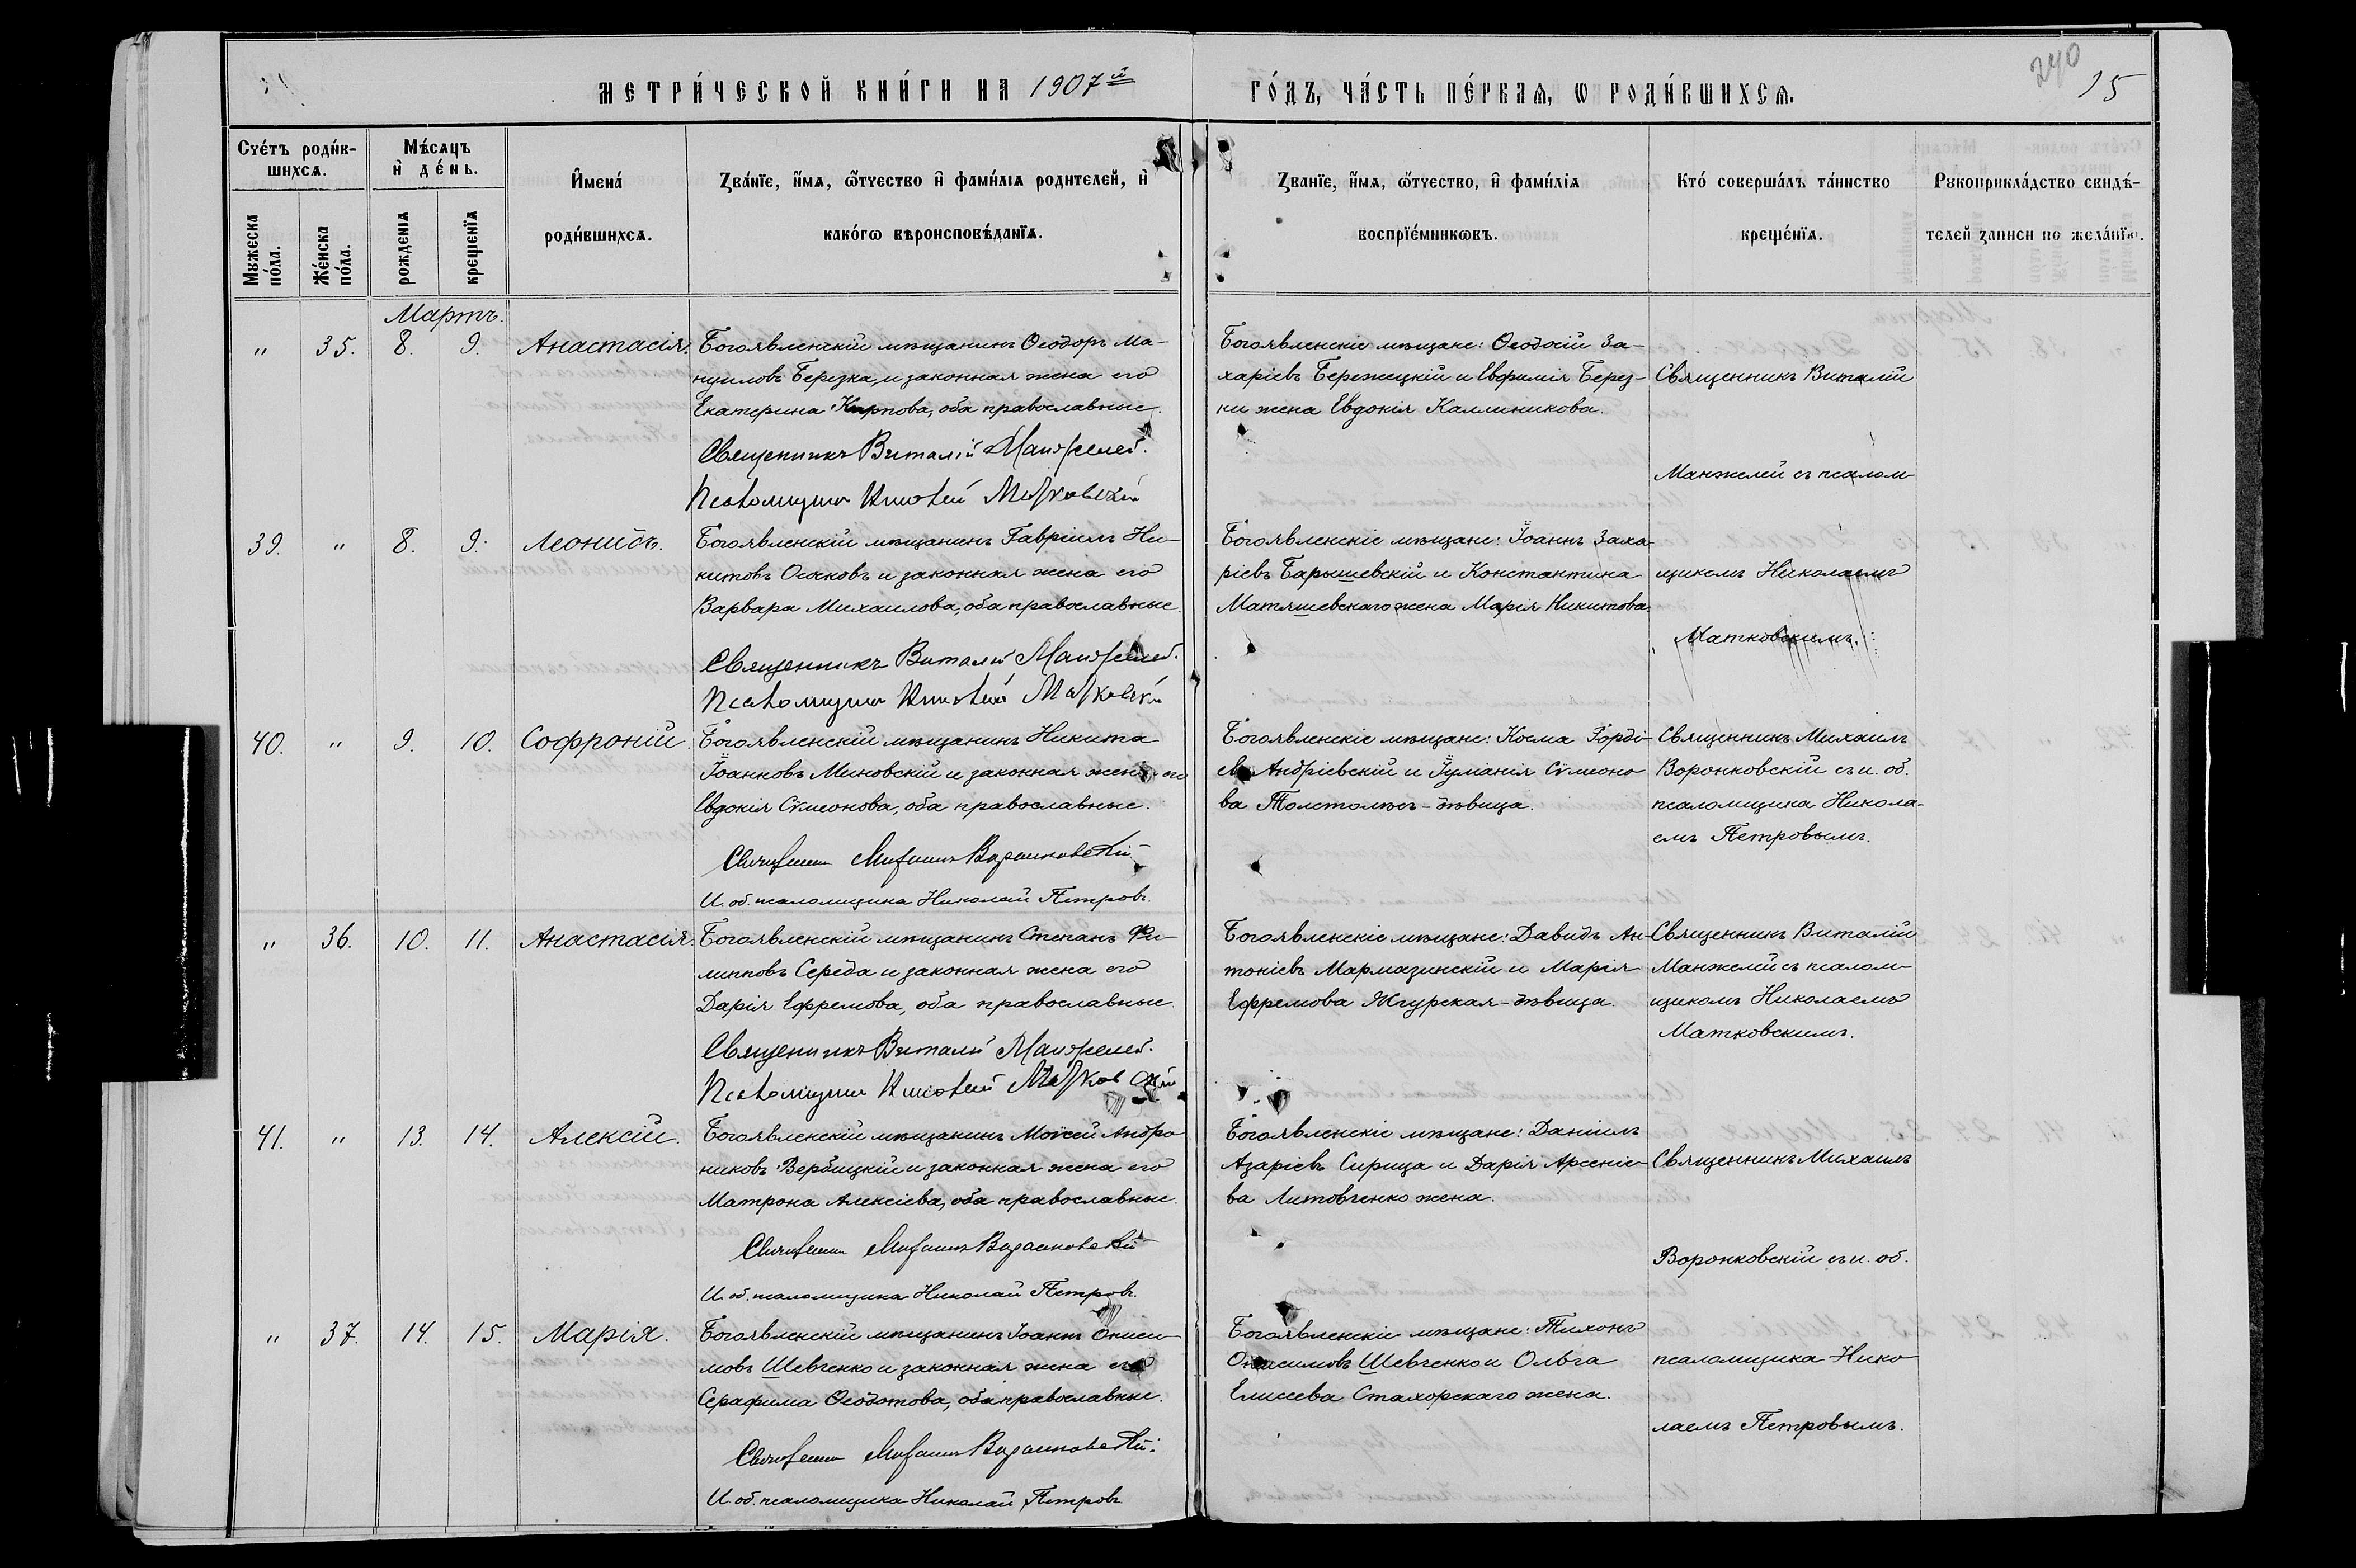 МЕТРИ́ЧЕСКОЙ КНИ́ГИ НА 1907й
ГО́ДЪ, ЧА́СТЬ ПЕ́РВАѦ, Ѡ РОДИ́ВШИХСѦ.
240
15
Сче́тъ роди́в-
шихсѧ.
Мꙋжеска по́ла.
Же́нска по́ла.
Мѣ́сѧцъ
и҆ де́нь.
рожденїѧ
крещенїѧ
И҆мена́
роди́вшихсѧ.
Зва́нїе, и҆́мѧ, ѻ҆́тчество и҆ фами́лїѧ родителей, и҆
како́гѡ вѣроисповѣ́данїѧ.
Званїе, и҆́мѧ, ѻ҆́тчество, и҆ фами́лїѧ
воспрїе́мникѡвъ.
Кто́ соверша́лъ та́инство
креще́нїѧ.
Рꙋкоприкла́дство свидѣ́-
телей записи по жела́нїю.
Мартъ.
" 35. 8. 9. Анастасія.
Богоявленскій мѣщанинъ Ѳеодоръ Ма-
нуиловъ Березка, и законная жена его
Екатерина Карпова, оба православные.
Священникъ Виталій Манжелей.
Псаломщикъ Николай Матковскій
Богоявленскіе мѣщане: Ѳеодосій За-
харіевъ Бережецкій и Евфимія Берез-
ки жена Евдокія Каллиникова.
Священникъ Виталій
Манжелей съ псалом-
39. " 8. 9. Леонидъ.
Богоявленскій мѣщанинъ Гавріилъ Ни-
китовъ Осяковъ и законная жена его
Варвара Михаилова, оба православные.
Священникъ Виталій Манжелей.
Псаломщикъ Николай Матковскій
Богоявленскіе мѣщане: Іоаннъ Заха-
ріевъ Барышевскій и Константина
Матяшевскаго жена Марія Никитова.
щикомъ Николаемъ
Матковскимъ.
40. " 9. 10. Софроній.
Богоявленскій мѣщанинъ Никита
Іоанновъ Миновскій и законная жена его
Евдокія Сѵмеонова, оба православные.
Священникъ Михаилъ Воронковскій
И. об. псаломщика Николай Петровъ.
Богоявленскіе мѣщане: Косма Горді-
евъ Андріевскій и Іуліанія Сѵмеоно-
ва Толстолѣсъ - дѣвица.
Священникъ Михаилъ
Воронковскій съ и. об.
псаломщика Никола-
емъ Петровымъ.
" 36. 10. 11. Анастасія.
Богоявленскій мѣщанинъ Степанъ Фи-
липповъ Середа и законная жена его
Дарія Ефремова, оба православные.
Священникъ Виталій Манжелей.
Псаломщикъ Николай Матковскій
Богоявленскіе мѣщане: Давидъ Ан-
тоніевъ Мармазинскій и Марія
Ефремова Жгурская - дѣвица.
Священникъ Виталій
Манжелей съ псалом-
щикомъ Николаемъ
Матковскимъ.
41. " 13. 14. Алексій.
Богоявленскій мѣщанинъ Моѵсей Андро-
никовъ Вербицкій и законная жена его
Матрона Алексіева, оба православные.
Священникъ Михаилъ Воронковскій
И. об. псаломщика Николай Петровъ.
Богоявленскіе мѣщане: Даніилъ
Азаріевъ Сирица и Дарія Арсеніе-
ва Литовченко жена.
Священникъ Михаилъ
Воронковскій съ и. об.
" 37. 14. 15. Марія.
Богоявленскій мѣщанинъ Іоаннъ Ониси-
мовъ Шевченко и законная жена его
Серафима Ѳеодотова, оба православные.
Священникъ Михаилъ Воронковскій.
И. об. псаломщика Николай Петровъ.
Богоявленскіе мѣщане: Тихонъ
Онисимовъ Шевченко и Ольга
Елисеева Стахорскаго жена.
псаломщика Нико-
лаемъ Петровымъ.